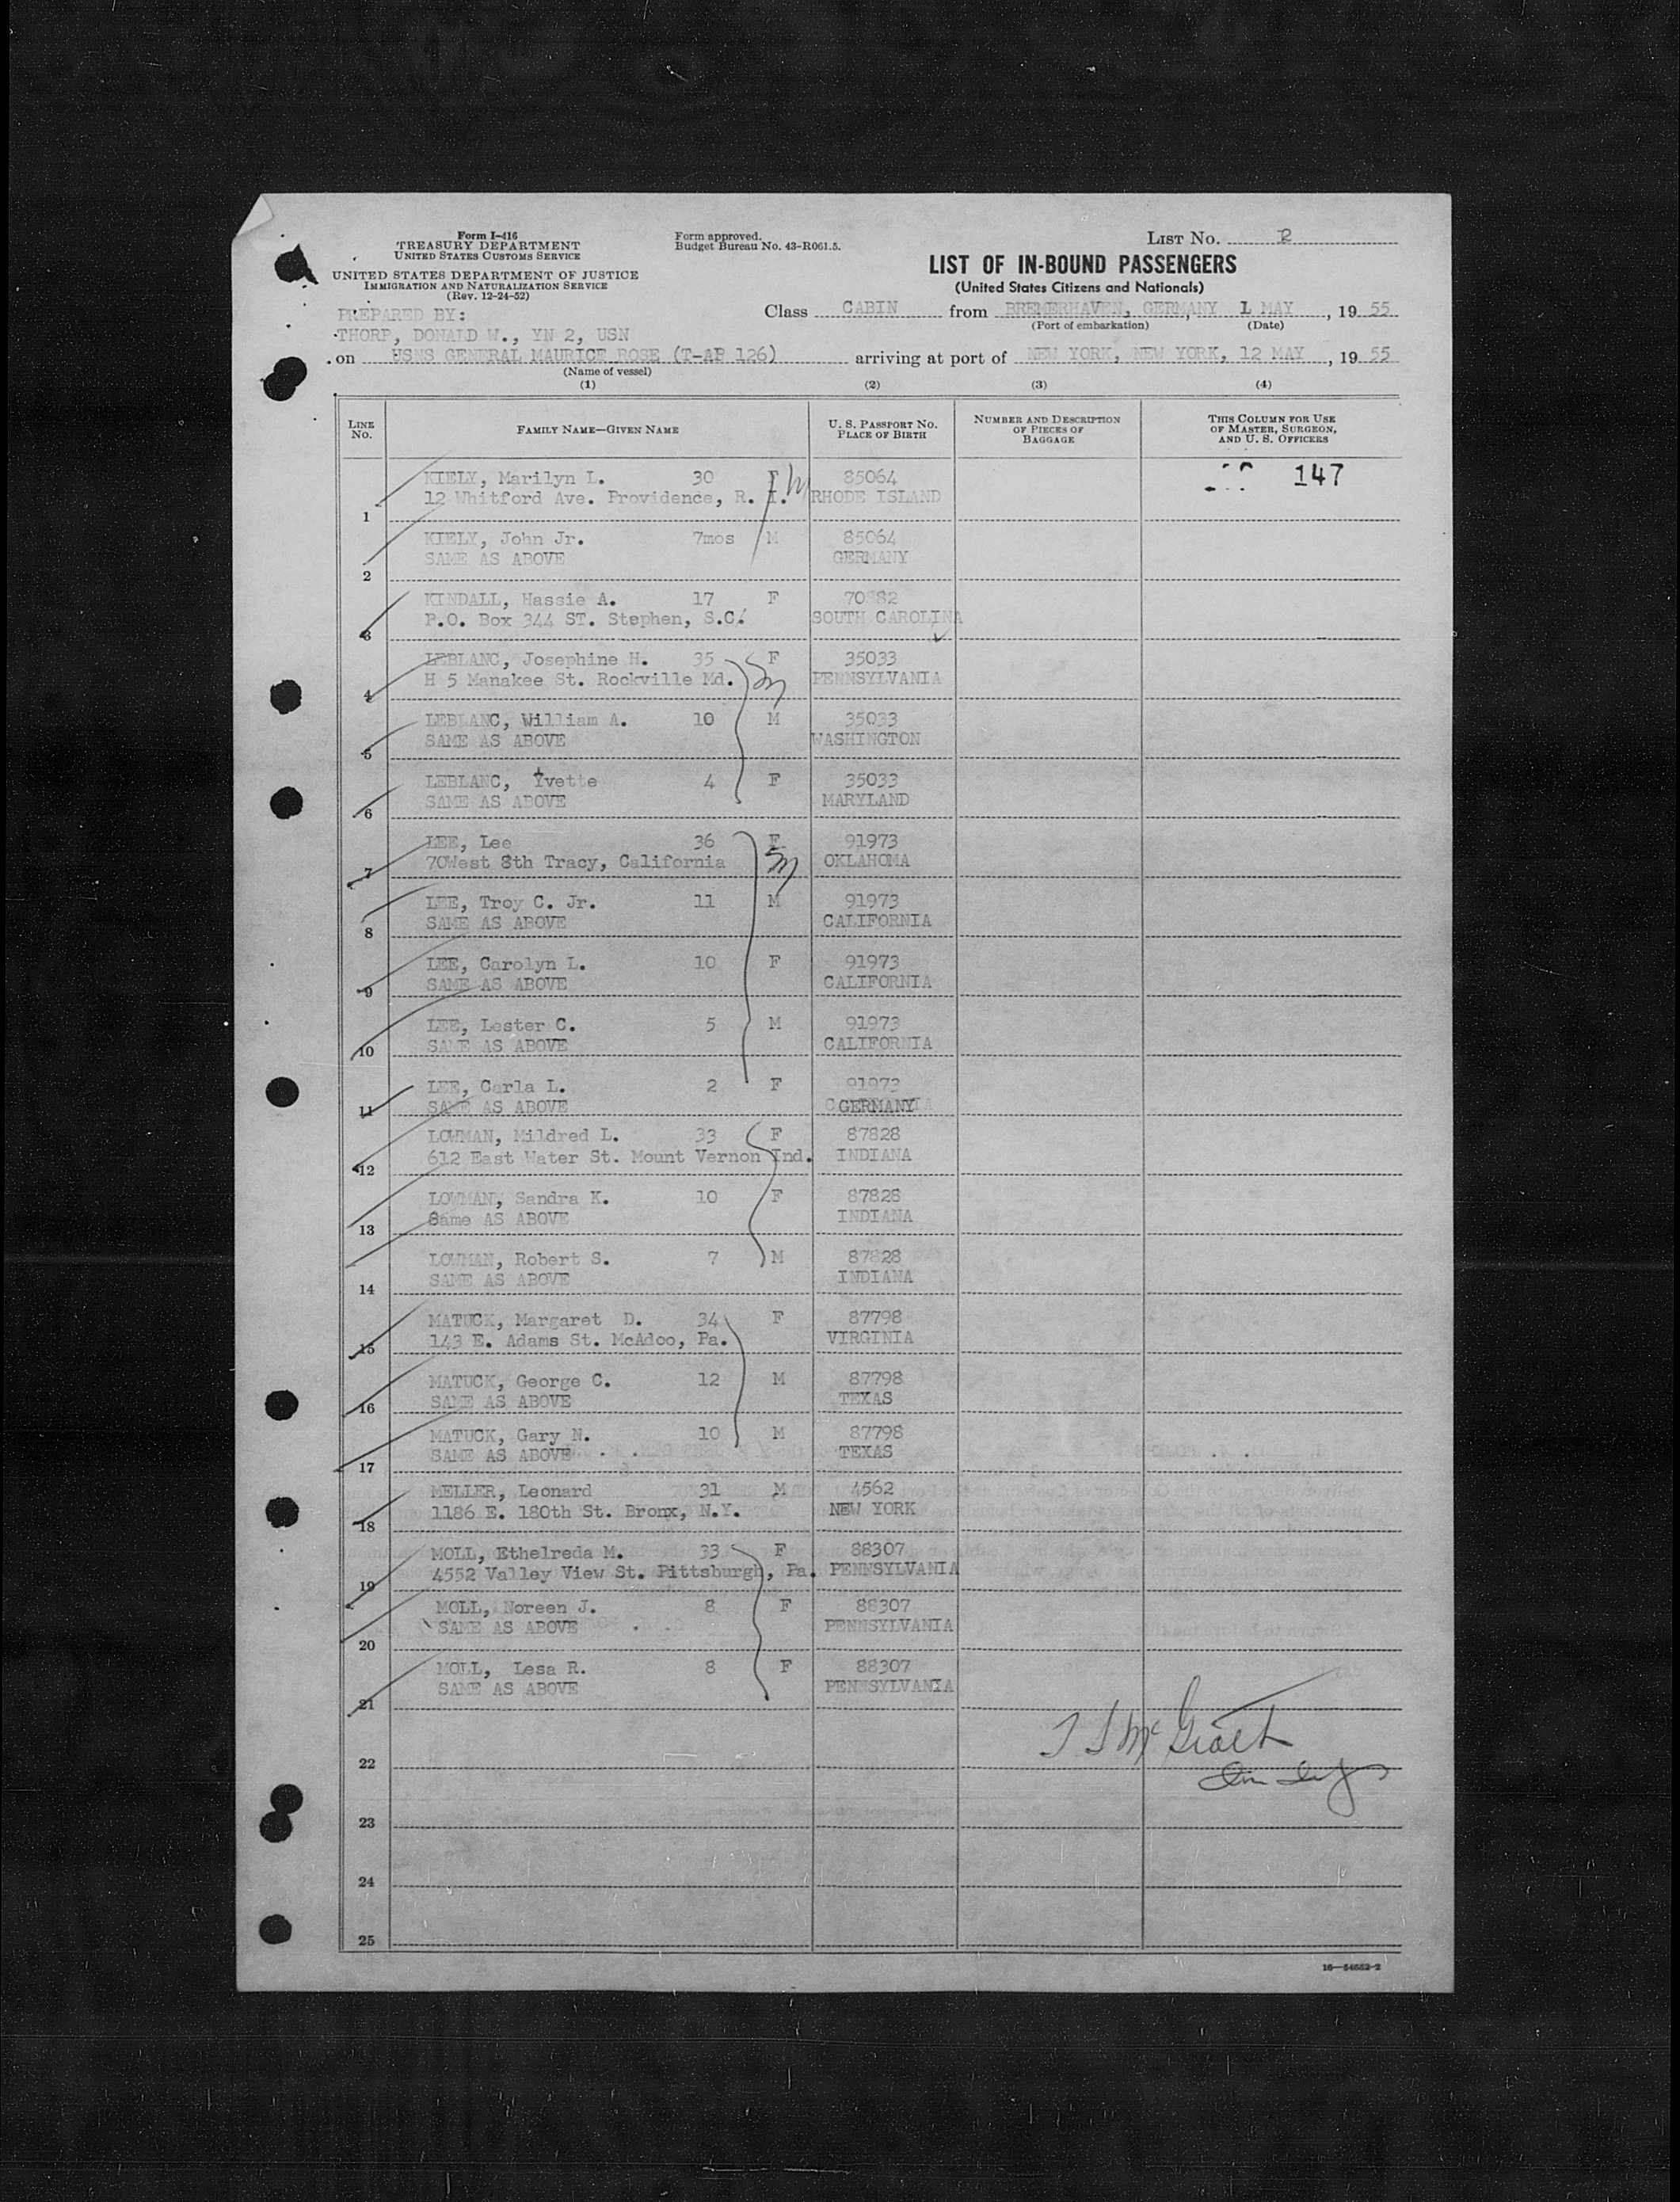 Form I-416
TREASURY DEPARTMENT
UNITED STATES CUSTOMS SERVICE
UNITED STATES DEPARTMENT OF JUSTICE
IMMIGRATION AND NATURALIZATION SERVICE
(Rev. 12-24-52)
Form approved.
Budget Bureau No. 43-R061.5.
LIST No. 2
LIST OF IN-BOUND PASSENGERS
(United States Citizens and Nationals)
PREPARED BY:
THORP, DONALD W., YN 2, USN
Class CABIN from BREMERHAVEN, GERMANY, 1 MAY, 19 55
(Port of embarkation) (Date)
on USNS GENERAL MAURICE ROSE (T-AP 126) arriving at port of NEW YORK, NEW YORK, 12 MAY, 19 55
(Name of vessel)
(1) (2) (3) (4)
LINE No. FAMILY NAME—GIVEN NAME U. S. PASSPORT NO. PLACE OF BIRTH NUMBER AND DESCRIPTION OF PIECES OF BAGGAGE THIS COLUMN FOR USE OF MASTER, SURGEON, AND U. S. OFFICERS
KIELY, Marilyn L. 30 F 85064 147
1 12 Whitford Ave. Providence, R. I. RHODE ISLAND
KIELY, John Jr. 7mos M 85064
2 SAME AS ABOVE GERMANY
KINDALL, Hassie A. 17 F 70882
3 P.O. Box 344 ST. Stephen, S.C. SOUTH CAROLINA
LEBLANC, Josephine H. 35 F 35033
4 H 5 Manakee St. Rockville Md. PENNSYLVANIA
LEBLANC, William A. 10 M 35033
5 SAME AS ABOVE WASHINGTON
LEBLANC, Yvette 4 F 35033
6 SAME AS ABOVE MARYLAND
LEE, Lee 36 F 91973
7 70West 8th Tracy, California OKLAHOMA
LEE, Troy C. Jr. 11 M 91973
8 SAME AS ABOVE CALIFORNIA
LEE, Carolyn L. 10 F 91973
9 SAME AS ABOVE CALIFORNIA
LEE, Lester C. 5 M 91973
10 SAME AS ABOVE CALIFORNIA
LEE, Carla L. 2 F 91973
11 SAME AS ABOVE GERMANY
LOWMAN, Mildred L. 33 F 87828
12 612 East Water St. Mount Vernon Ind. INDIANA
LOWMAN, Sandra K. 10 F 87828
13 Same AS ABOVE INDIANA
LOWMAN, Robert S. 7 M 87828
14 SAME AS ABOVE INDIANA
MATUCK, Margaret D. 34 F 87798
15 143 E. Adams St. McAdoo, Pa. VIRGINIA
MATUCK, George C. 12 M 87798
16 SAME AS ABOVE TEXAS
MATUCK, Gary N. 10 M 87798
17 SAME AS ABOVE TEXAS
MELLER, Leonard 31 M 4562
18 1186 E. 180th St. Bronx, N.Y. NEW YORK
MOLL, Ethelreda M. 33 F 88307
19 4552 Valley View St. Pittsburgh, Pa. PENNSYLVANIA
MOLL, Noreen J. 8 F 88307
20 SAME AS ABOVE PENNSYLVANIA
MOLL, Lesa R. 8 F 88307
21 SAME AS ABOVE PENNSYLVANIA
22
23
24
25
16—54652-2